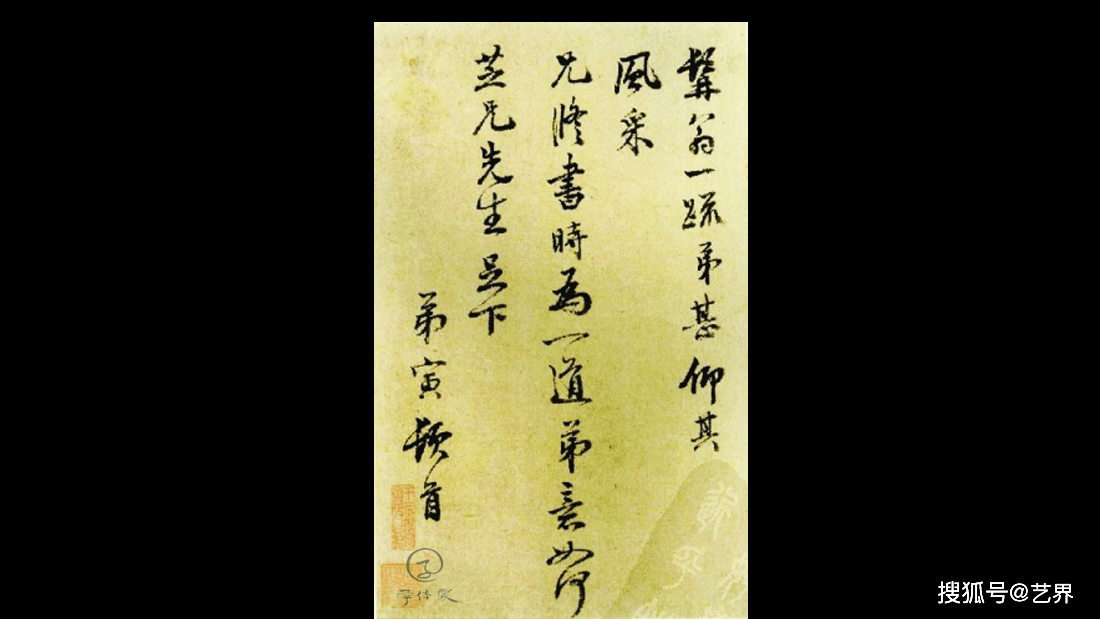 髯翁一疏弟甚仰其
風采
兄脩書時為一道弟意如何
芝兄先生足下
弟寅頓首
字体家
搜狐号@艺界